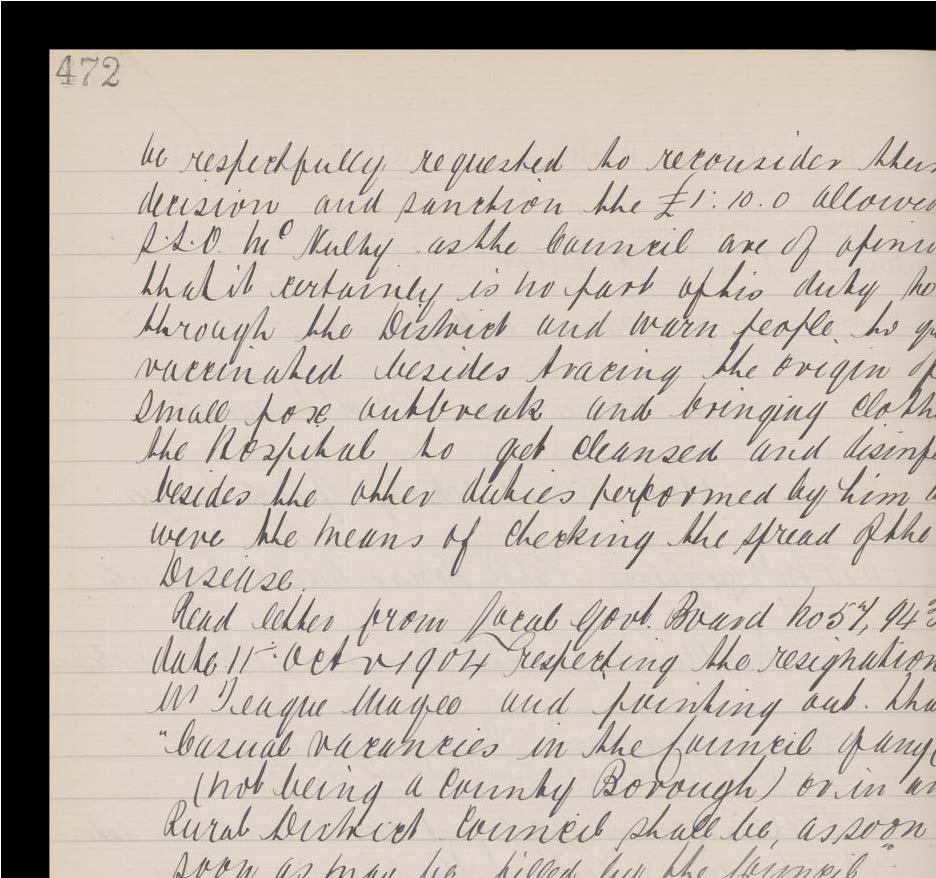 472
be respectfully requested to reconsider their
decision and sanction the £1:10.0 allowed
S.S.O. McNulty as the Council are of opinio
that it certainly is no part of his duty to
through the District and warn people to g
vaccinated besides tracing the origin of
small pox outbreak and bringing cloth
the Hospital to get cleansed and disinfe
besides the other duties performed by him
were the means of checking the spread of the
Disease.
Read letter from Local Govt. Board No 57, 94
date 11th Octr 1904 respecting the resignation
Mr Teague Magee and pointing out. tha
"Casual vacancies in the Council of any
(not being a County Borough) or in an
Rural District Council shall be, as soon
soon as may be filled by the Council"